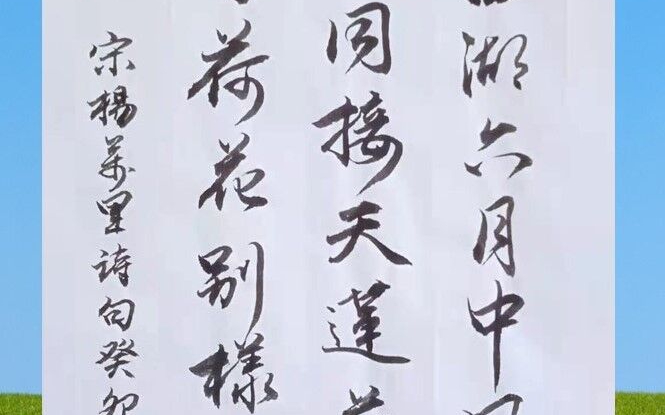 湖六月中
同接天蓮
荷花别様
宋楊萬里詩句癸卯